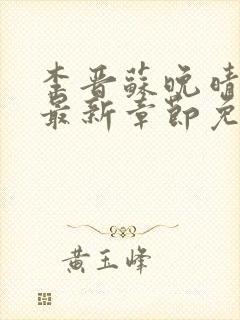 李晋苏晚晴
最新章节免
黄玉峰